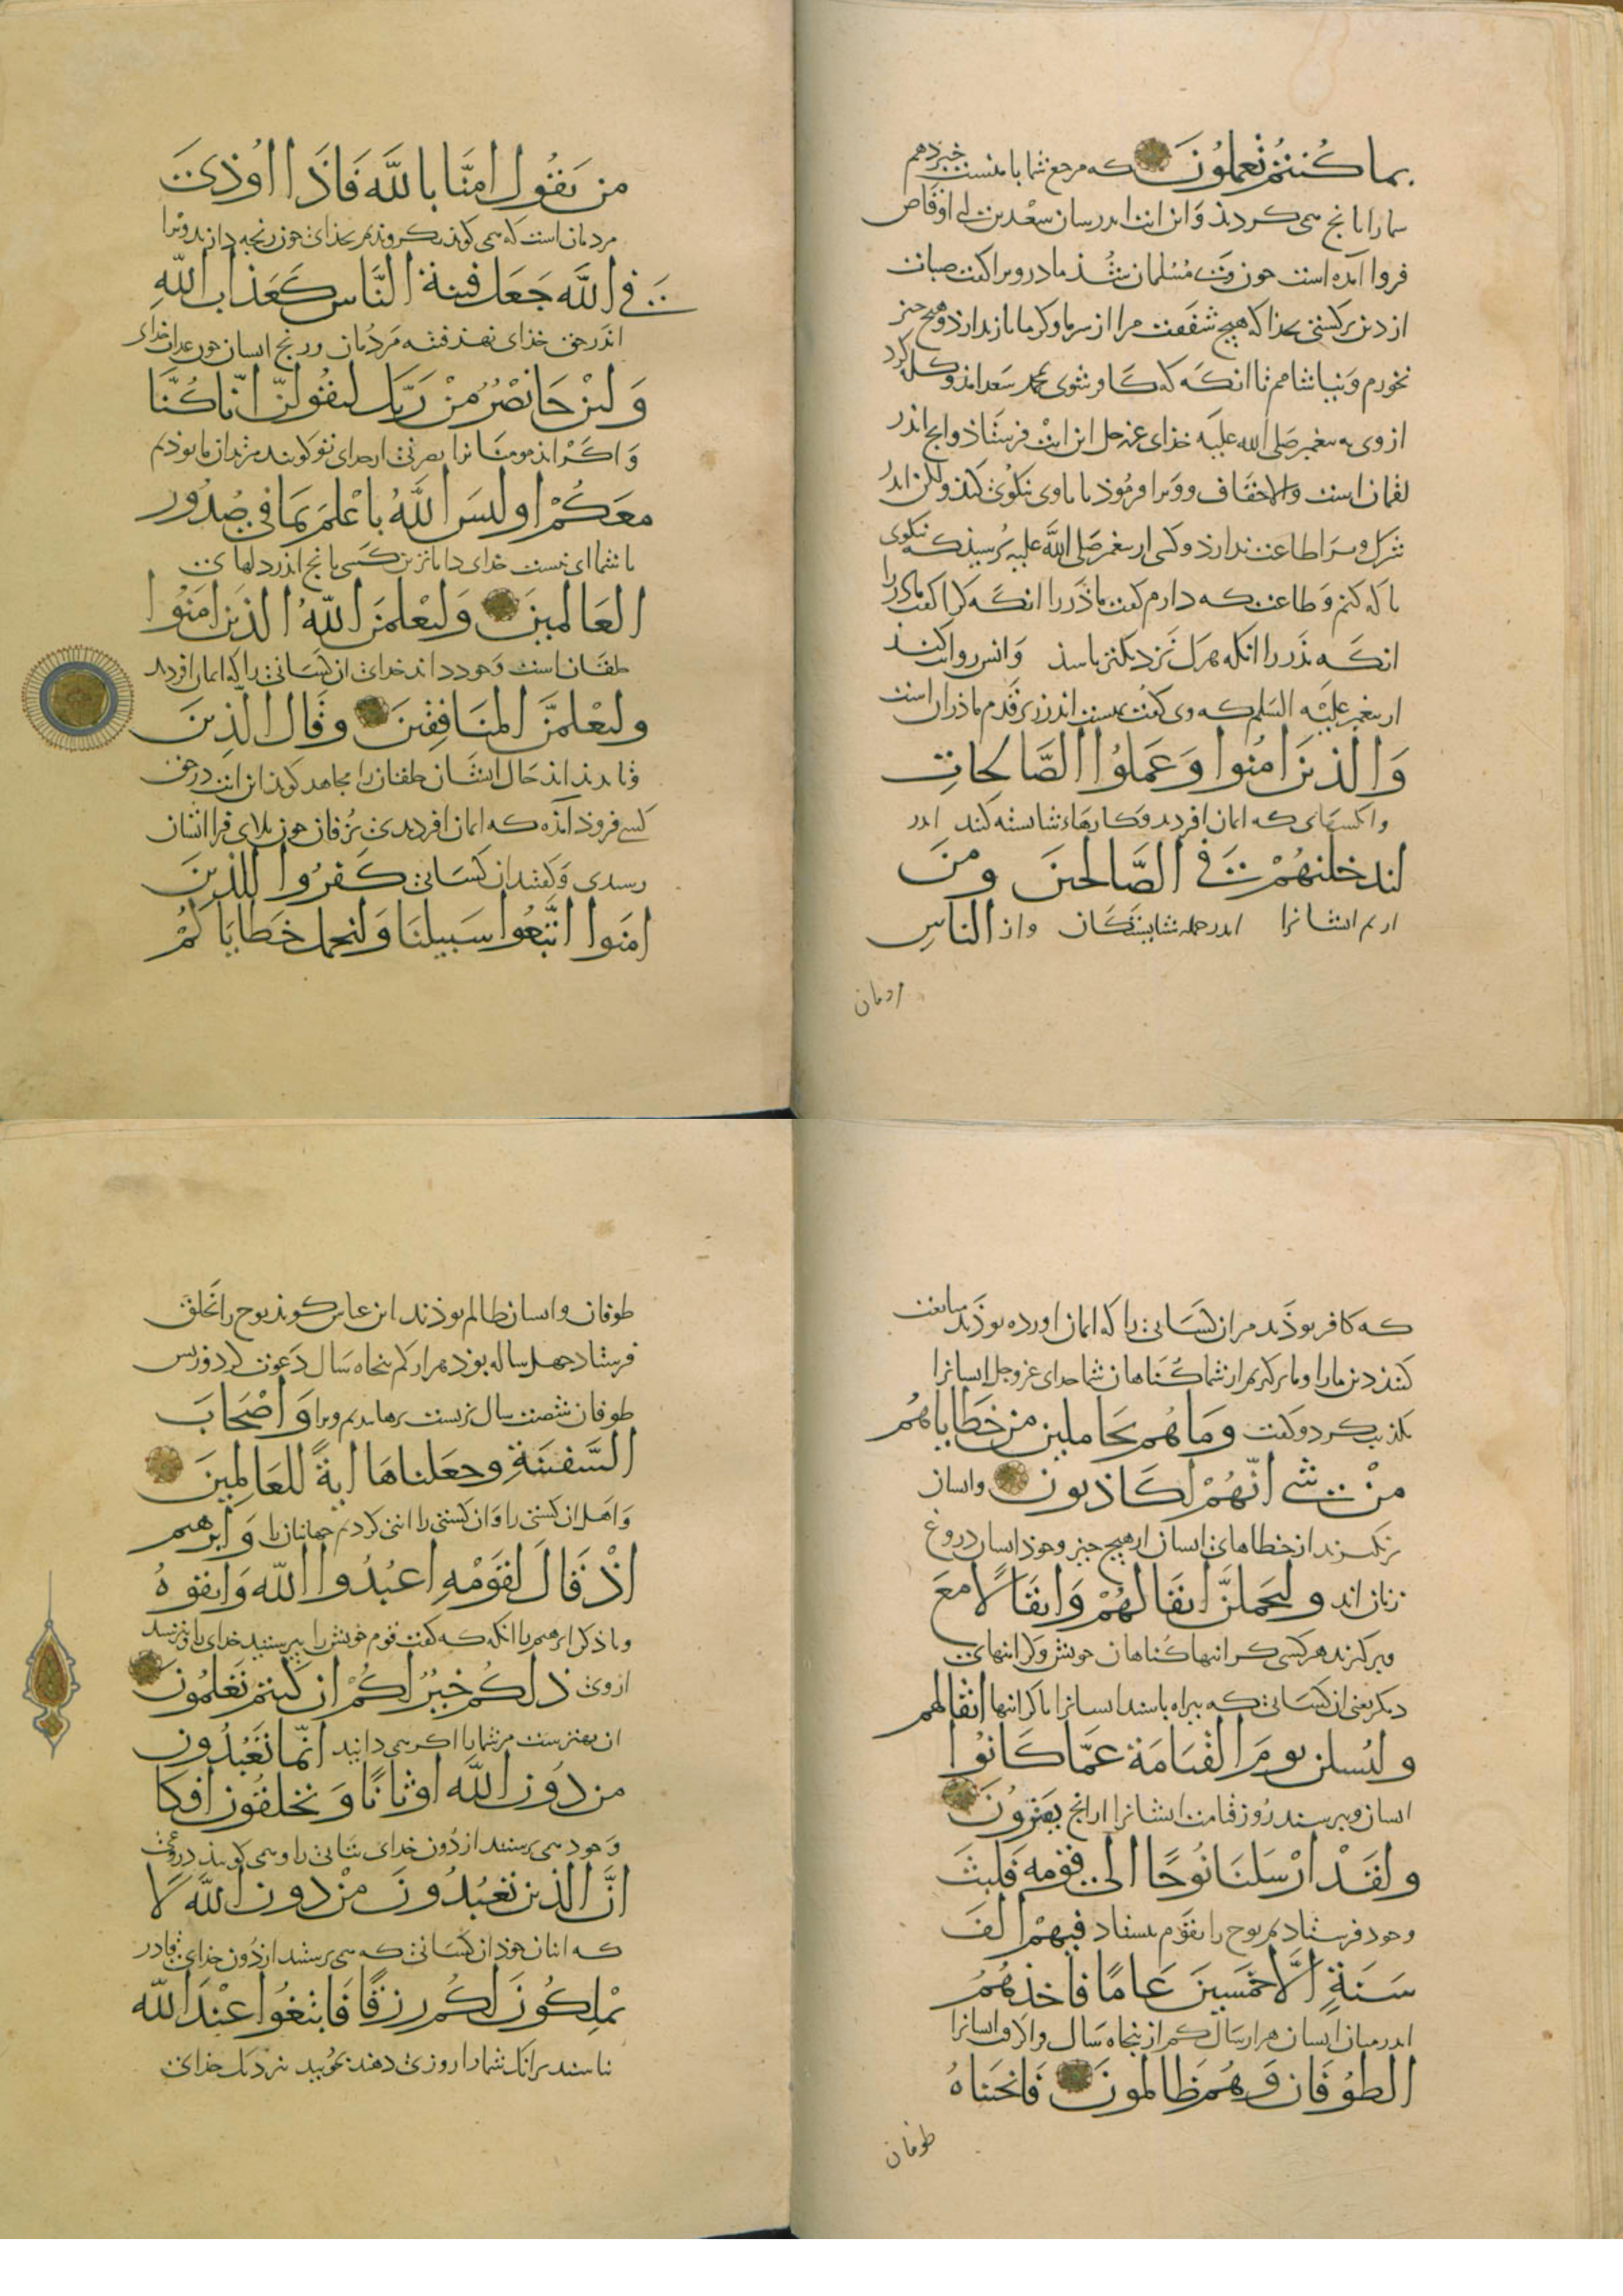 بما كُنتُم تَعملوُنَ که مرجع شما با منست خبر دهم
سمارا بانج می کردید و این ایت اندر سان سعد بن ابی اوقاص
فروا آمده است حون وی مُسْلمان شُد مادر ویرا کفت صبات
از دین برکشتی بخدا که هیچ شفقت مرا از سرما و کرما باز ندارد و هیچ جیز
نخورم و نیاشامم تا انکه که کافر شوی بمحمد سعد اندو کل کرد
از وی به پیغمبر صَلی الله علیه خدای عز و جل این ایت فرستاذ و انج اندر
لقمان است والاحقاف و ویرا فرموذ تا با وی نیکوی کند ولکن اندر
شرک ویرا طاعت ندارذ و کسی از پیغمبر صَلی الله علیه پرسید که نیکوی
با که کنم و طاعت که دارم کفت ماذر را انکه کرا کفت ماذر را
انکه پذر را انکه هرک نزدیکتر باسذ وانس روایت کند
از پیغمبر علیه السلم که وی کفت بهست اندر زیر قدم ماذران است
وَالذينَ امَنوا وَعَملوُا الصَّالحَاتِ
وانکسهای که ایمان اوردند و کارهاء شایسته کنند اندر
لندخلنهُمْ في الصَّالحينَ ومنَ
اریم ایشانرا اندر جمله شایستکان واز الناسِ
مردمان
من يَقوُل امَنَّا باللَّه فَاذَا اوُذىَ
مردمان است که می کوید بکرویدیم بخدای جون رنجه دارند ویرا
في اللَّه جَعَل فتنة النَّاس كَعَذاب اللّهِ
اندر حق خدای نهد فتنه مردمان و رنج ایسان جون عذاب خدای
وَلئن جَا نَصْرُ مِنْ رَبّك ليقوُلنّ انّا كُنَّا
و اکر اید مومنانرا نصرتی از خدای تو کویند مر ایشان ما بوذیم
مَعَكُمْ اوليسَ اللَّهُ باعْلمَ بمَا في صُدُور
با شما ای نیست خدای داناترین کسی بانج اندر دلهای
العَالمينَ وَليَعْلمَنَّ اللّهُ الذينَ امَنوُا
خلقان است و خود داند خدای ان کسانی را که ایمان اوردند
وليَعْلمنَّ المنَافقينَ وقَال الذينَ
و بداند حال ایشان خلقان را مجاهد کوید این ایت در حق
کسی فروذ آمده که ایمان اوردندی بزفان جون بلای فرا ایشان
رسیدی و کفتند ان کسانی كَفرُوا للذينَ
امَنوا اتَّبعُوا سَبيلنَا وَلنحمل خَطَايَاكُمْ
که کافر بوذند مران کسانی را که ایمان اورده بوذند متابعت
کنید دین مارا و ما برکیریم از شما کناهان شما خدای عز و جل ایسانرا
تکذیب کرد و کفت وَمَا هُم بحَاملين من خَطَاياهُم
مِنْ شي انّهُمْ لَكَاذبون وایسان
برنکیرند از خطاهای ایسان از هیج جیز و خوذ ایسان دروغ
زنان اند وليحملنَّ اثقَالهُمْ وَاثقَالاً معَ
وبرکیرند هرکسی کرانیها کناهان خویش و کرانیهای
دیکر یعنی ان کسانی که بیراه باسند ایسانرا با کرانیها اثقالهم
وليُسئلن يومَ القيَامَة عمَّا كَانوُا
ایسان و بپرسند روز قیامت ایشانرا از انج يَفتروُنَ
ولقَدْ ارْسَلنَا نوُحًا الى قومه فلبثَ
و خود فرستادیم نوح را بقوم بستاد فيهمْ الفَ
سَنَةٍ الاّ خمَسينَ عَامًا فاخَذهُمُ
اندر میان ایسان هزار سال کم از پنجاه سال وایسانرا
الطوُفَان وَهُم ظَالمونَ فَانجَيناهُ
طوفان
طوفان وایسان ظالم بوذند ابن عباس کوید نوح را بخلق
فرستاد جهل ساله بود هزار کم پنجاه سال دعوت کرد و زپس
طوفان شصت سال بزیست برهانیدیم ویرا وَاصْحَابَ
السَّفينَةِ وجعلناهَا ايةً للعَالمينَ
واهل ان کشتی را وان کشتی را ایتی کردیم جهانیان را وَابرهيم
اذْ قَالَ لقَوْمْهِ اعبُدُوا اللّه وَاتقوهُ
و یاذکن ابرهیم را انکه که کفت قوم خویش را بپرستید خدای را و بترسید
ازوی ذلكُم خَيرٌ لكُمْ ان كنتم تَعْلمُونَ
ان بهترست مر شمارا اکر می دانید انّما تَعْبُدُون
من دُون اللَّه اوثانًا وَتخلقوُن افكا
و خود می پرستید از دون خدای بتانی را و می کویید دروغی
انَّ الذين تعْبُدُونَ منْ دون اللَّه لاَ
که اینان خوذ ان کسانی که می پرستید از دون خدای قادر
يمْلكُونَ لكُم رزقًا فَابتغُوا عنْدَ اللّه
نباسند برانک شمارا روزی دهند بجویید نزدیک خدای